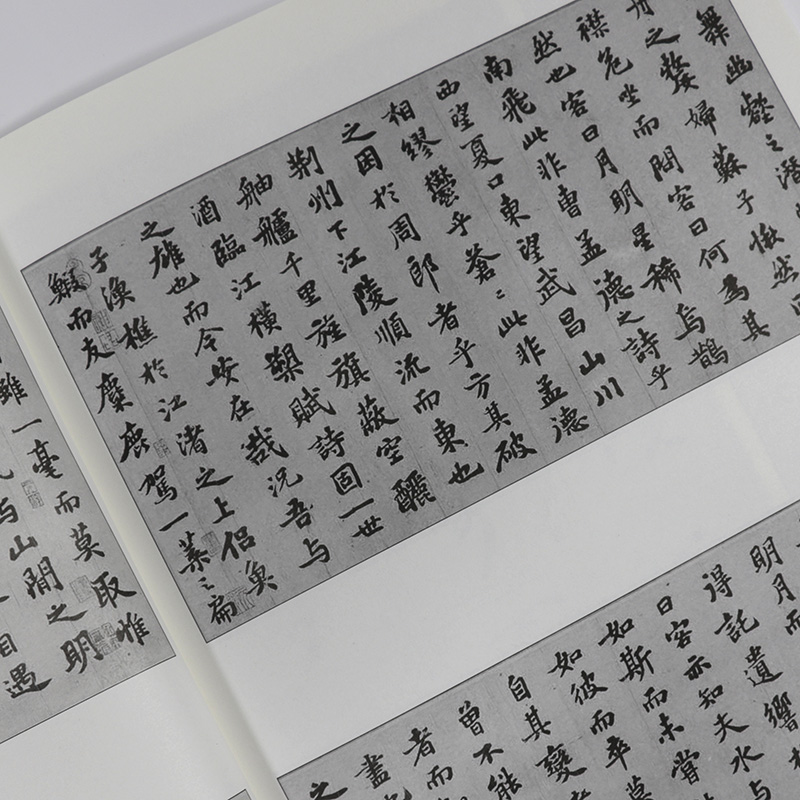 舞幽壑之潛
舟之嫠婦蘇子愀然
襟危坐而問客曰何為其
然也客曰月明星稀烏鵲
南飛此非曹孟德之詩乎
西望夏口東望武昌山川
相繆鬱乎蒼〻此非孟德
之困於周郎者乎方其破
荊州下江陵順流而東也
舳艫千里旌旗蔽空釃
酒臨江橫槊賦詩固一世
之雄也而今安在哉況吾與
子漁樵於江渚之上侶魚
鰕而友麋鹿駕一葉之扁
明月而
得託遺響
曰客亦知夫水與
如斯而未嘗
如彼而卒莫
自其變者
曾不能
者而
盡
之
雖一毫而莫取惟
與山間之明
目遇